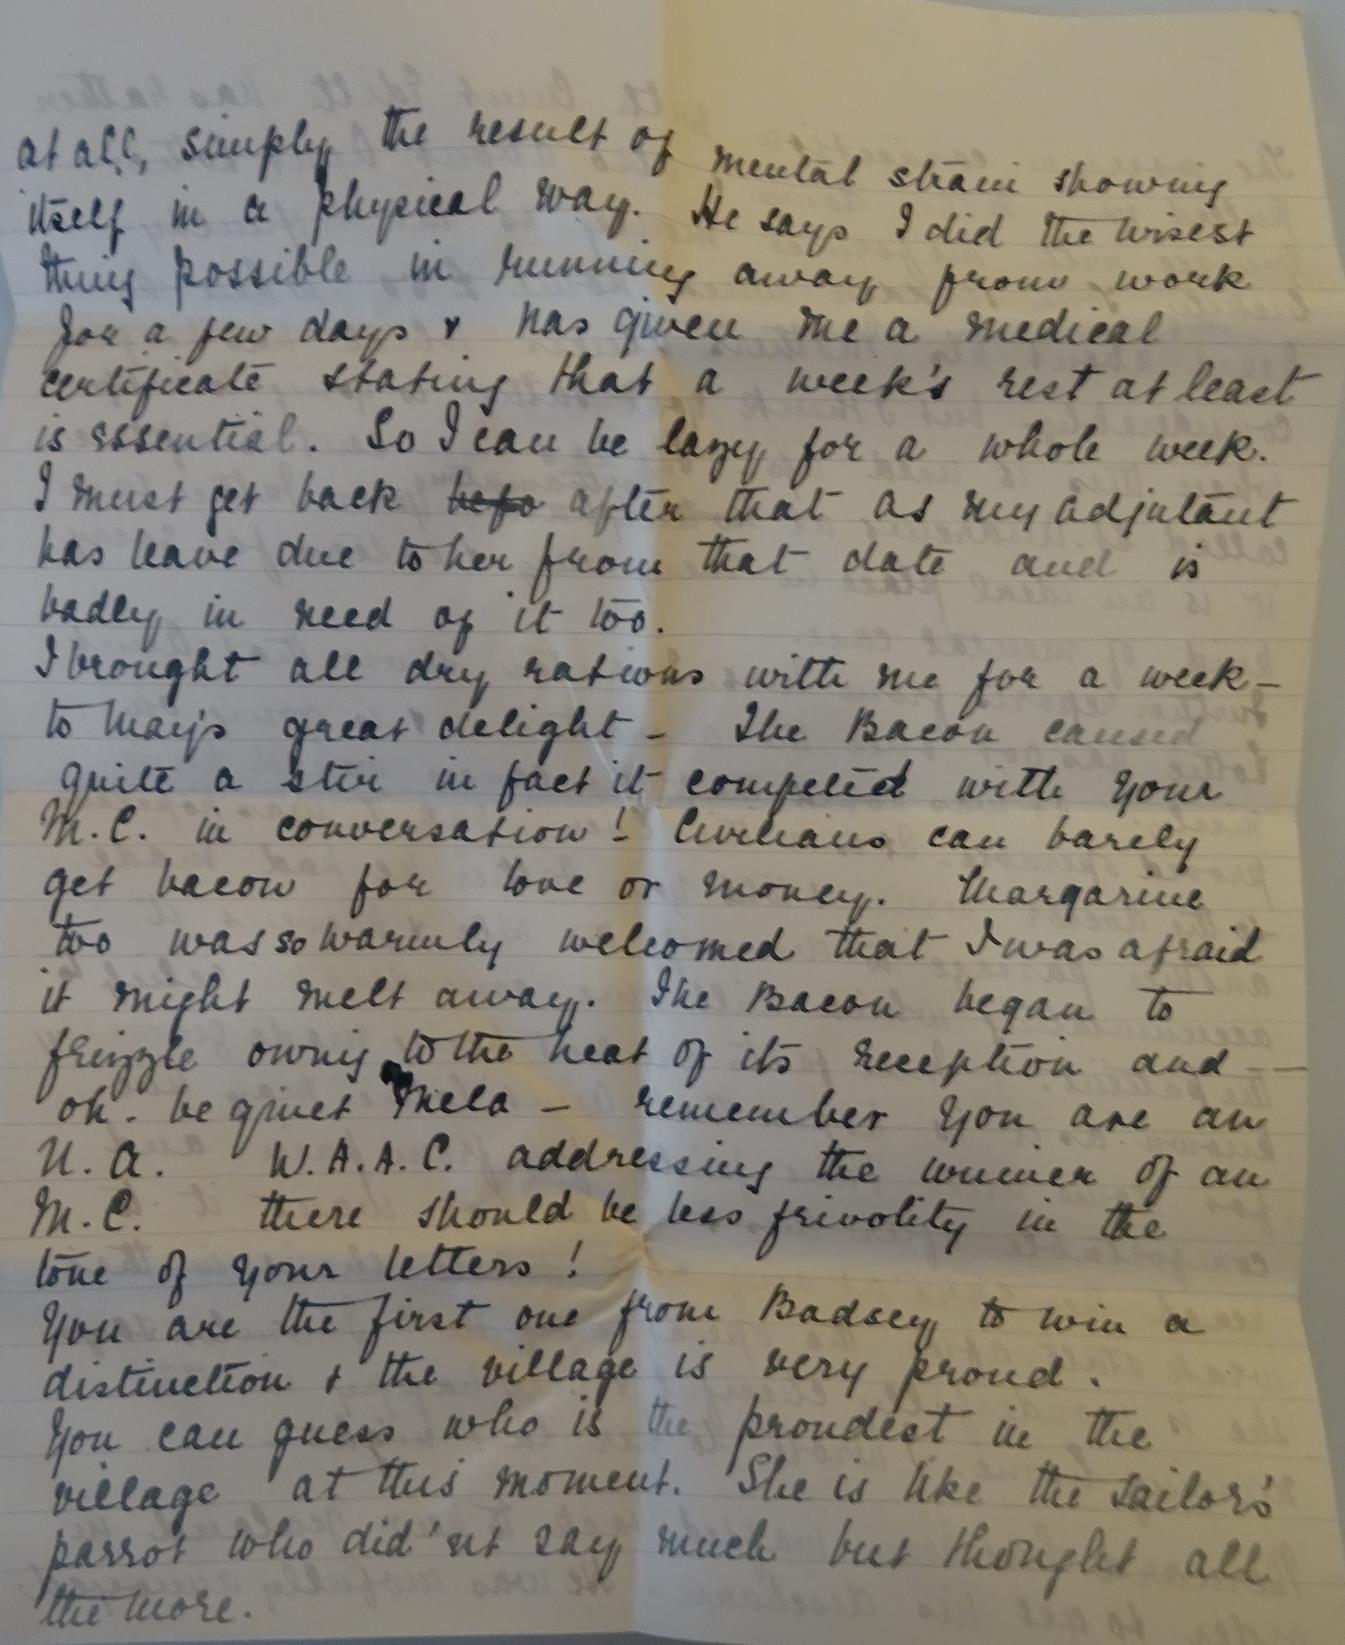 at all, simply the result of mental strain showing
itself in a physical way. He says I did the wisest
thing possible in running away from work
for a few days & has given me a medical
certificate stating that a week's rest at least
is essential. So I can be lazy for a whole week.
I must get back befo after that as my adjutant
has leave due to her from that date and is
badly in need of it too.
I brought all dry rations with me for a week –
to May's great delight – The Bacon caused
quite a stir in fact it competed with your
M.C. in conversation! Civilians can barely
get bacon for love or money. Margarine
too was so warmly welcomed that I was afraid
it might melt away. The Bacon began to
frizzle owing to the heat of its reception and --
oh. be quiet Mela – remember you are an
U.A. W.A.A.C. addressing the winner of an
M.C. there should be less frivolity in the
tone of your letters!
You are the first one from Badsey to win a
distinction & the village is very proud.
You can guess who is the proudest in the
village at this moment. She is like the sailor's
parrot who did'nt say much but thought all
the more.